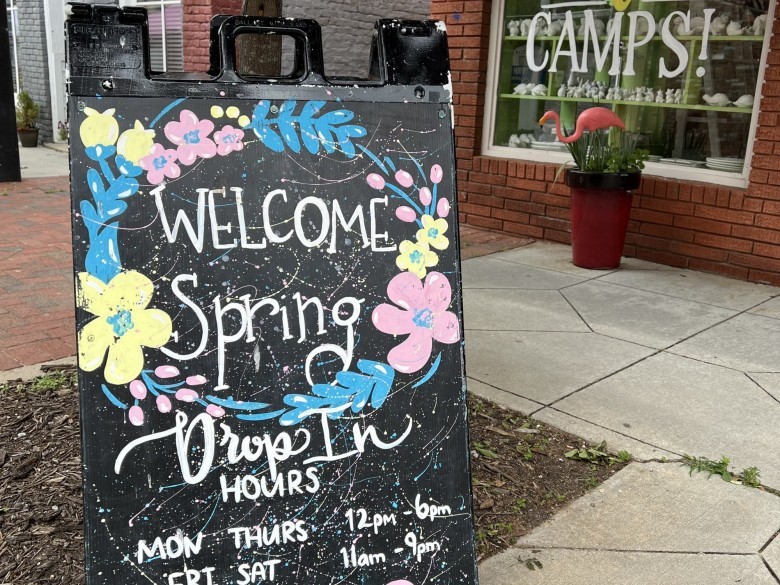 CAMPS!
WELCOME
Spring
Drop In
HOURS
MON THURS 12pm - 6pm
FRI SAT 11am - 9pm